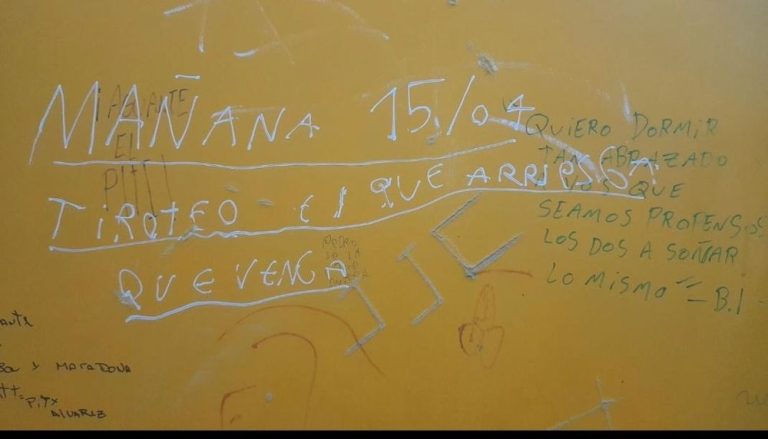 MAÑANA 15/04
TIROTEO El QUE ARRIESGA
QUE VENGA
¡AGUANTE
EL
PITY!
QUIERO DORMIR
TAN ABRAZADO
A VOS QUE
SEAMOS PROPENSOS
LOS DOS A SOÑAR
LO MISMO" - B.I
PEDRO
Y MARADONA
PITY
ALVAREZ